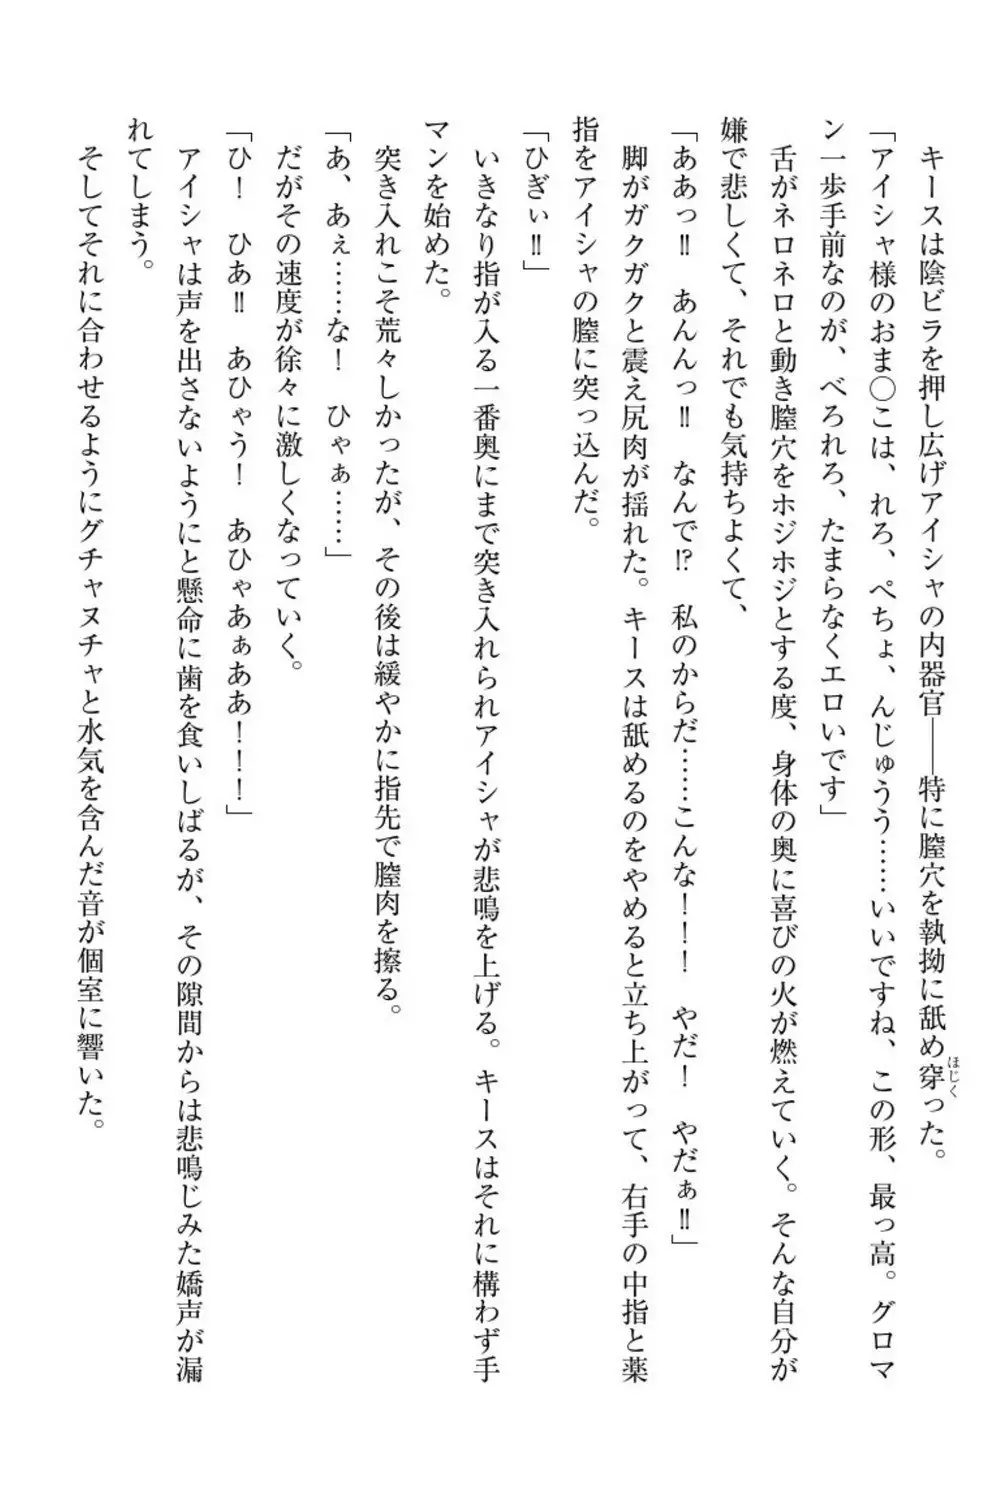 キースは陰ビラを押し広げアイシャの内器官――特に膣穴を執拗に舐め穿った。
ほじく
「アイシャ様のおま〇こは、れろ、ぺちょ、んじゅうう……いいですね、この形、最っ高。グロマ
ン一歩手前なのが、べろれろ、たまらなくエロいです」
舌がネロネロと動き膣穴をホジホジとする度、身体の奥に喜びの火が燃えていく。そんな自分が
嫌で悲しくて、それでも気持ちよくて、
「ああっ‼　あんんっ‼　なんで⁉　私のからだ……こんな！！！　やだ！　やだぁ‼」
脚がガクガクと震え尻肉が揺れた。キースは舐めるのをやめると立ち上がって、右手の中指と薬
指をアイシャの膣に突っ込んだ。
「ひぎぃ‼」
いきなり指が入る一番奥にまで突き入れられアイシャが悲鳴を上げる。キースはそれに構わず手
マンを始めた。
突き入れこそ荒々しかったが、その後は緩やかに指先で膣肉を擦る。
「あ、あぇ……な！　ひゃぁ……」
だがその速度が徐々に激しくなっていく。
「ひ！　ひあ‼　あひゃう！　あひゃあぁああ！！！」
アイシャは声を出さないようにと懸命に歯を食いしばるが、その隙間からは悲鳴じみた嬌声が漏
れてしまう。
そしてそれに合わせるようにグチャヌチャと水気を含んだ音が個室に響いた。